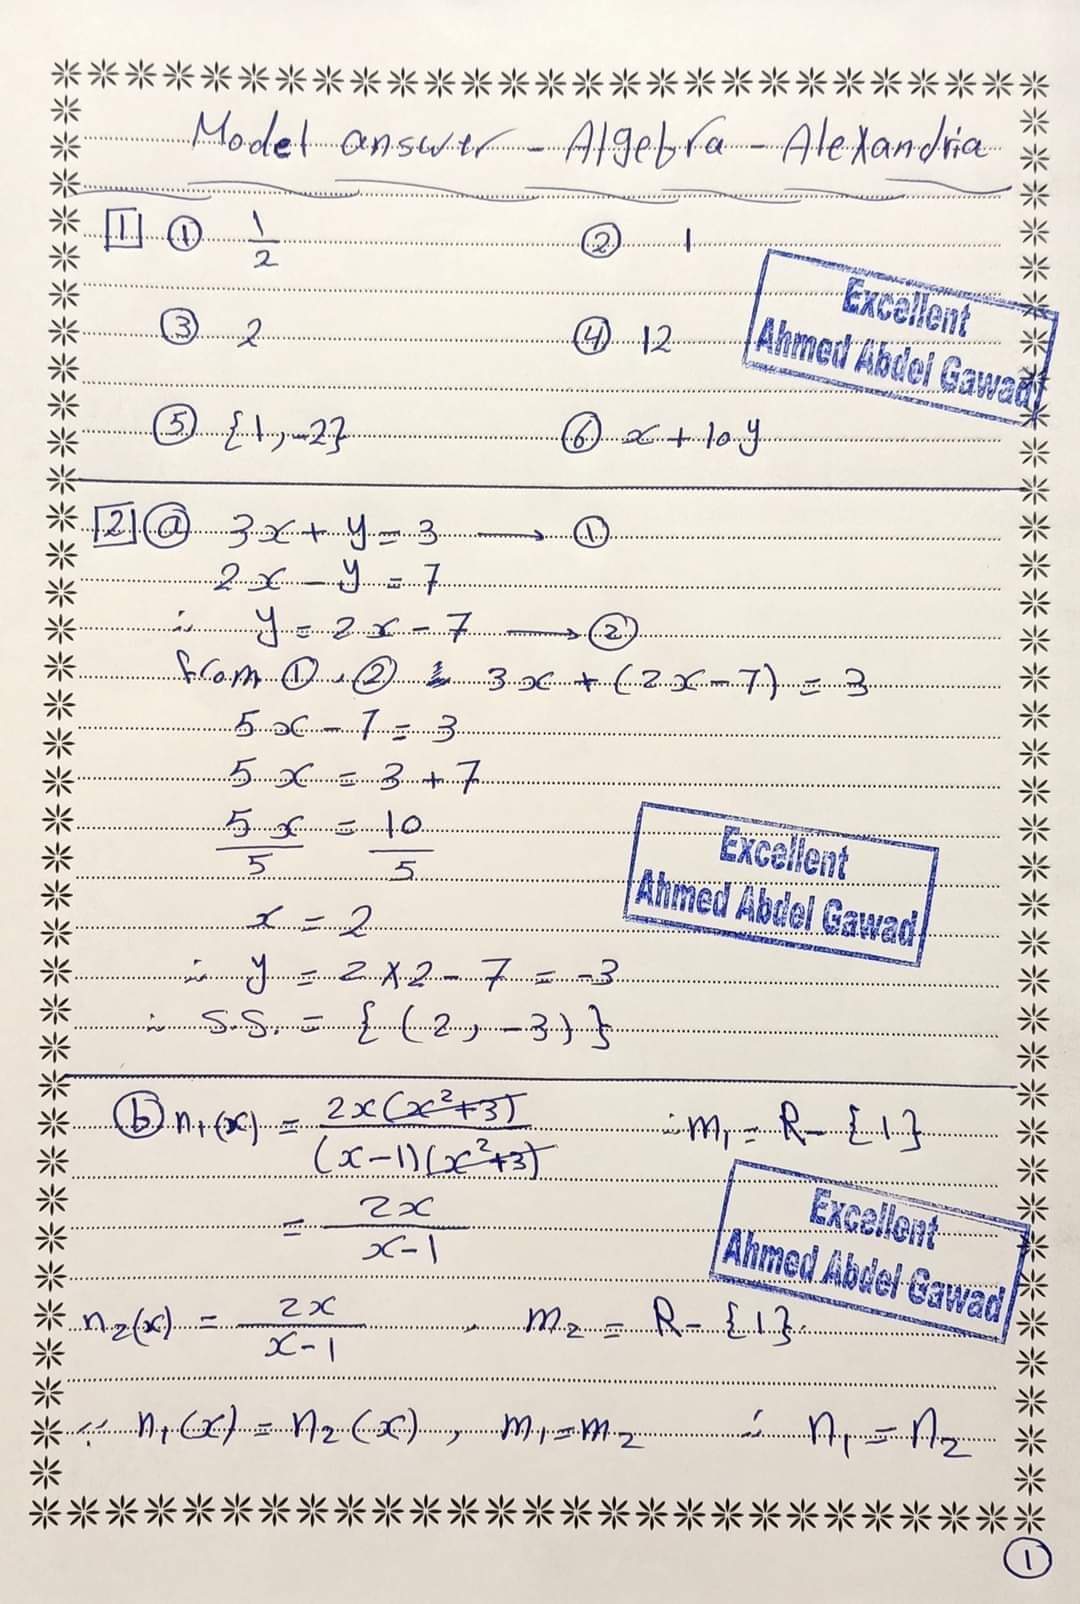 Model answer - Algebra - Alexandria
1 ① 1/2 ② 1
Excellent
Ahmed Abdel Gawad
③ 2 ④ 12
⑤ {1, -2} ⑥ x + 10y
2 ⓐ 3x + y = 3 → ①
2x - y = 7
∴ y = 2x - 7 → ②
from ①, ② 3x + (2x - 7) = 3
5x - 7 = 3
5x = 3 + 7
5x/5 = 10/5
Excellent
Ahmed Abdel Gawad
x = 2
∴ y = 2 × 2 - 7 = -3
∴ S.S. = {(2, -3)}
ⓑ n₁(x) = 2x(x²+3)/(x-1)(x²+3) ∴ m₁ = R - {1}
= 2x/x-1
Excellent
Ahmed Abdel Gawad
n₂(x) = 2x/x-1 , m₂ = R - {1}
∵ n₁(x) = n₂(x), m₁ = m₂ ∴ n₁ = n₂
①